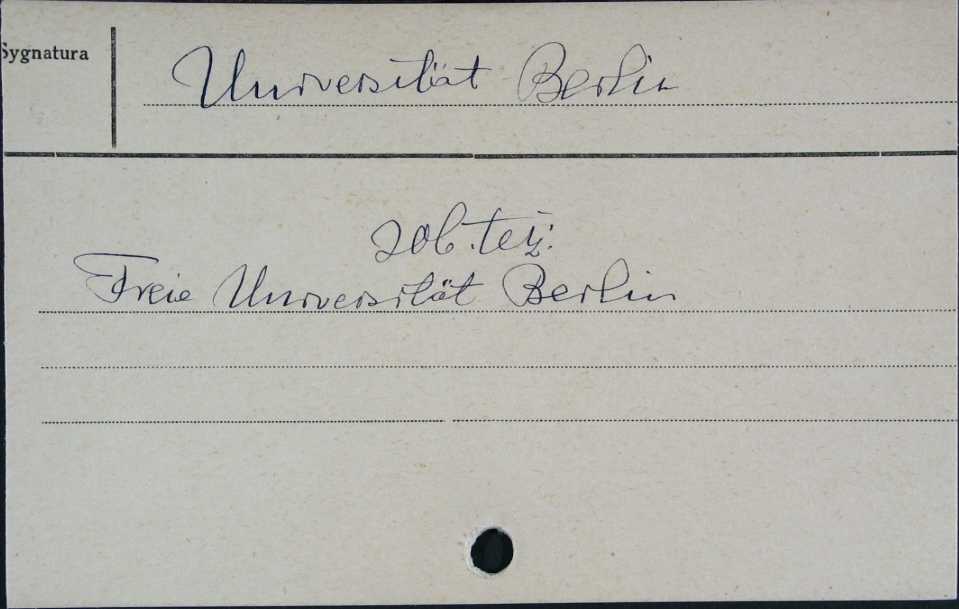 Sygnatura
Universität Berlin
zob. też:
Freie Universität Berlin